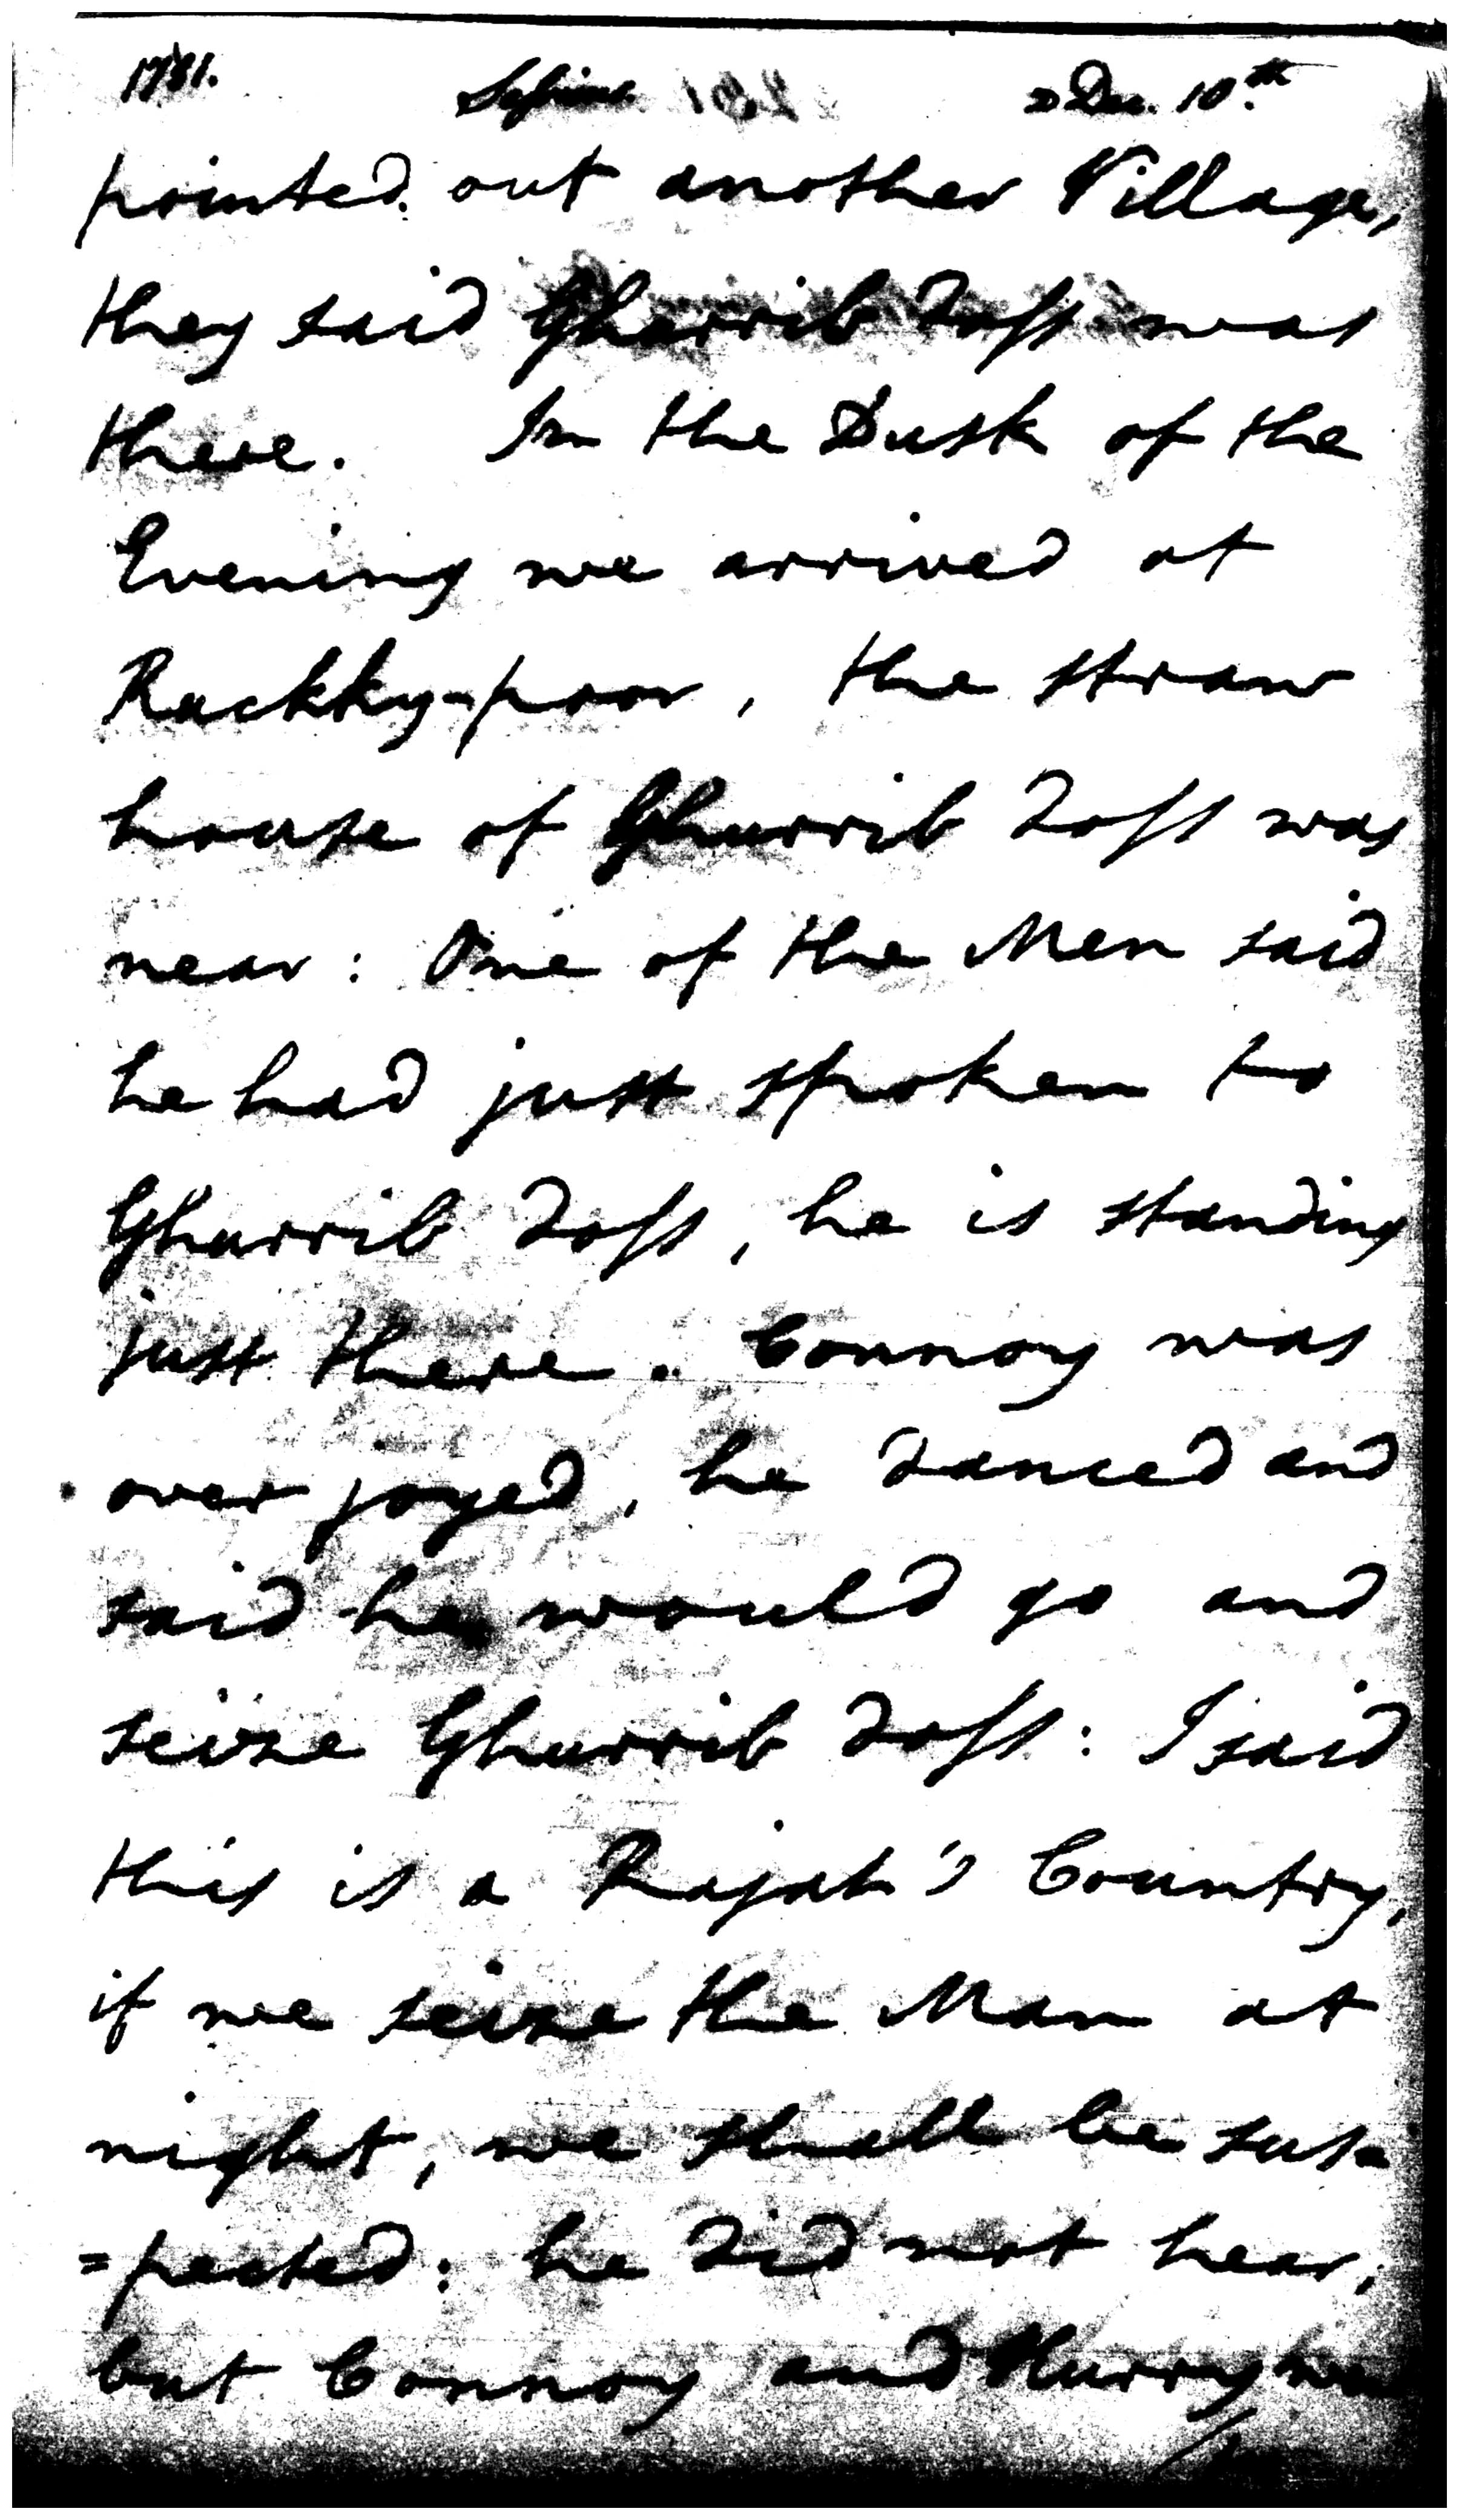 1781. Dec. 10th
pointed out another Village,
they said Gharrib Doss was
there. In the Dusk of the
Evening we arrived at
Rackhy-poor, the straw
house of Gharrib Doss was
near: One of the Men said
he had just spoken to
Gharrib Doss, he is standing
just there. Connoy was
over joyed, he danced and
said he would go and
seize Gharrib Doss: I said
this is a Rajah's Country,
if we seize the Man at
night, we shall be sus=
=pected: he did not hear,
but Connoy and Hurry